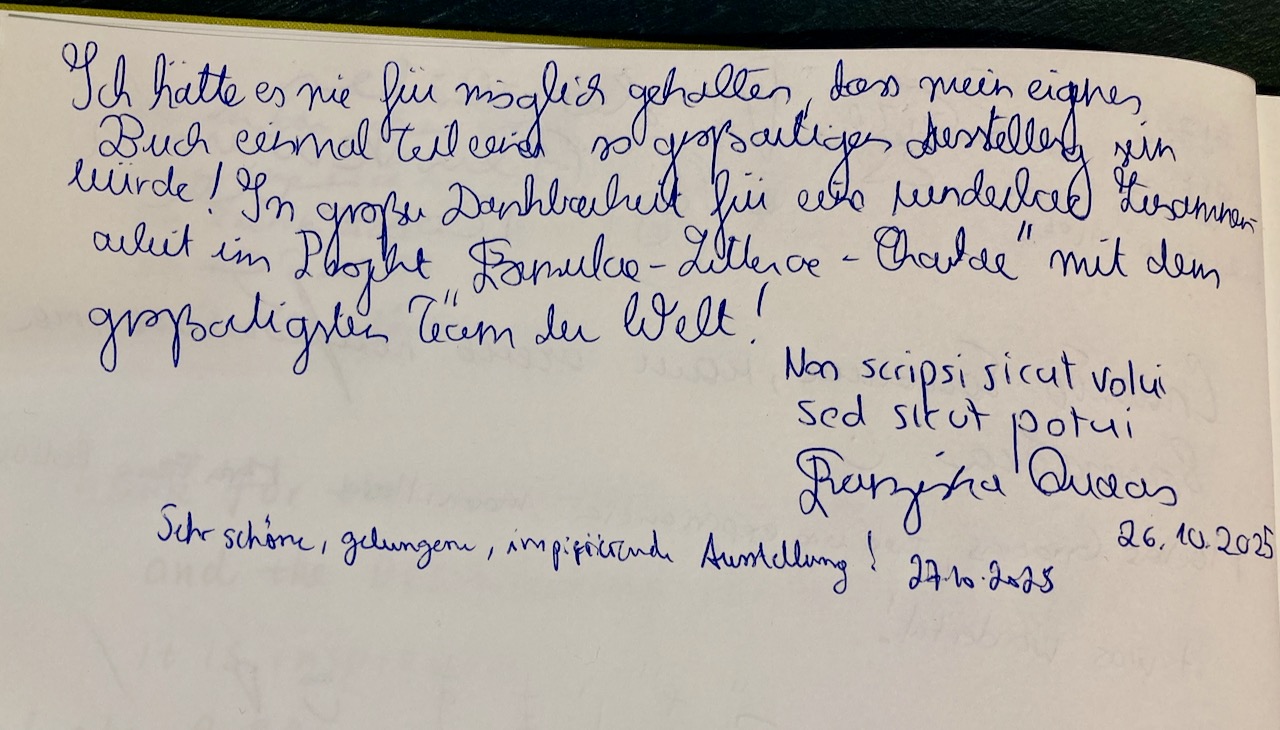 Ich hätte es nie für möglich gehalten, dass mein eignes
Buch einmal Teil einer so großartigen Ausstellung sein
würde! In großer Dankbarkeit für eine wunderbare Zusammen-
arbeit im Projekt "Formulae - Litterae - Chartae" mit dem
großartigsten Team der Welt!
Non scripsi sicut volui
sed sicut potui
Franziska Quaas
26.10.2025
Sehr schöne, gelungene, inspirierende Ausstellung! 27.10.2025